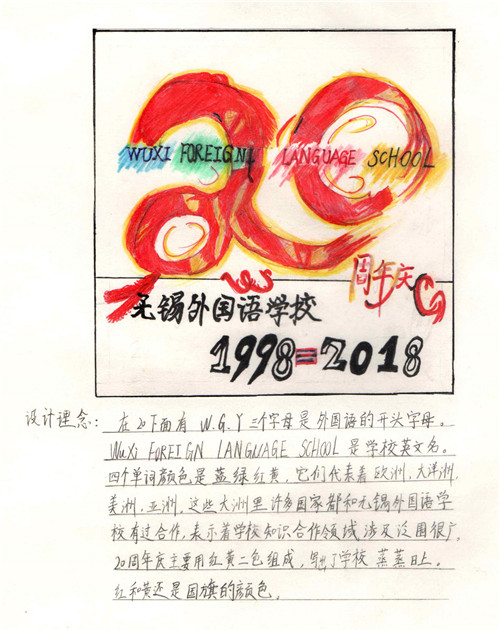 20
WUXI FOREIGN LANGUAGE SCHOOL
周年庆
无锡外国语学校
1998=2018
设计理念: 在20下面有 W.G.Y 三个字母是外国语的开头字母。
WuXi FOREIGN LANGNAGE SCHOOL 是学校英文名。
四个单词颜色是蓝绿红黄,它们代表着欧洲,大洋洲,
美洲,亚洲,这些大洲里许多国家都和无锡外国语学
校有过合作,表示着学校知识合作领域涉及泛围很广。
20周年庆主要用红黄二色组成,了学校 蒸蒸日上。
红和黄还是国旗的颜色。